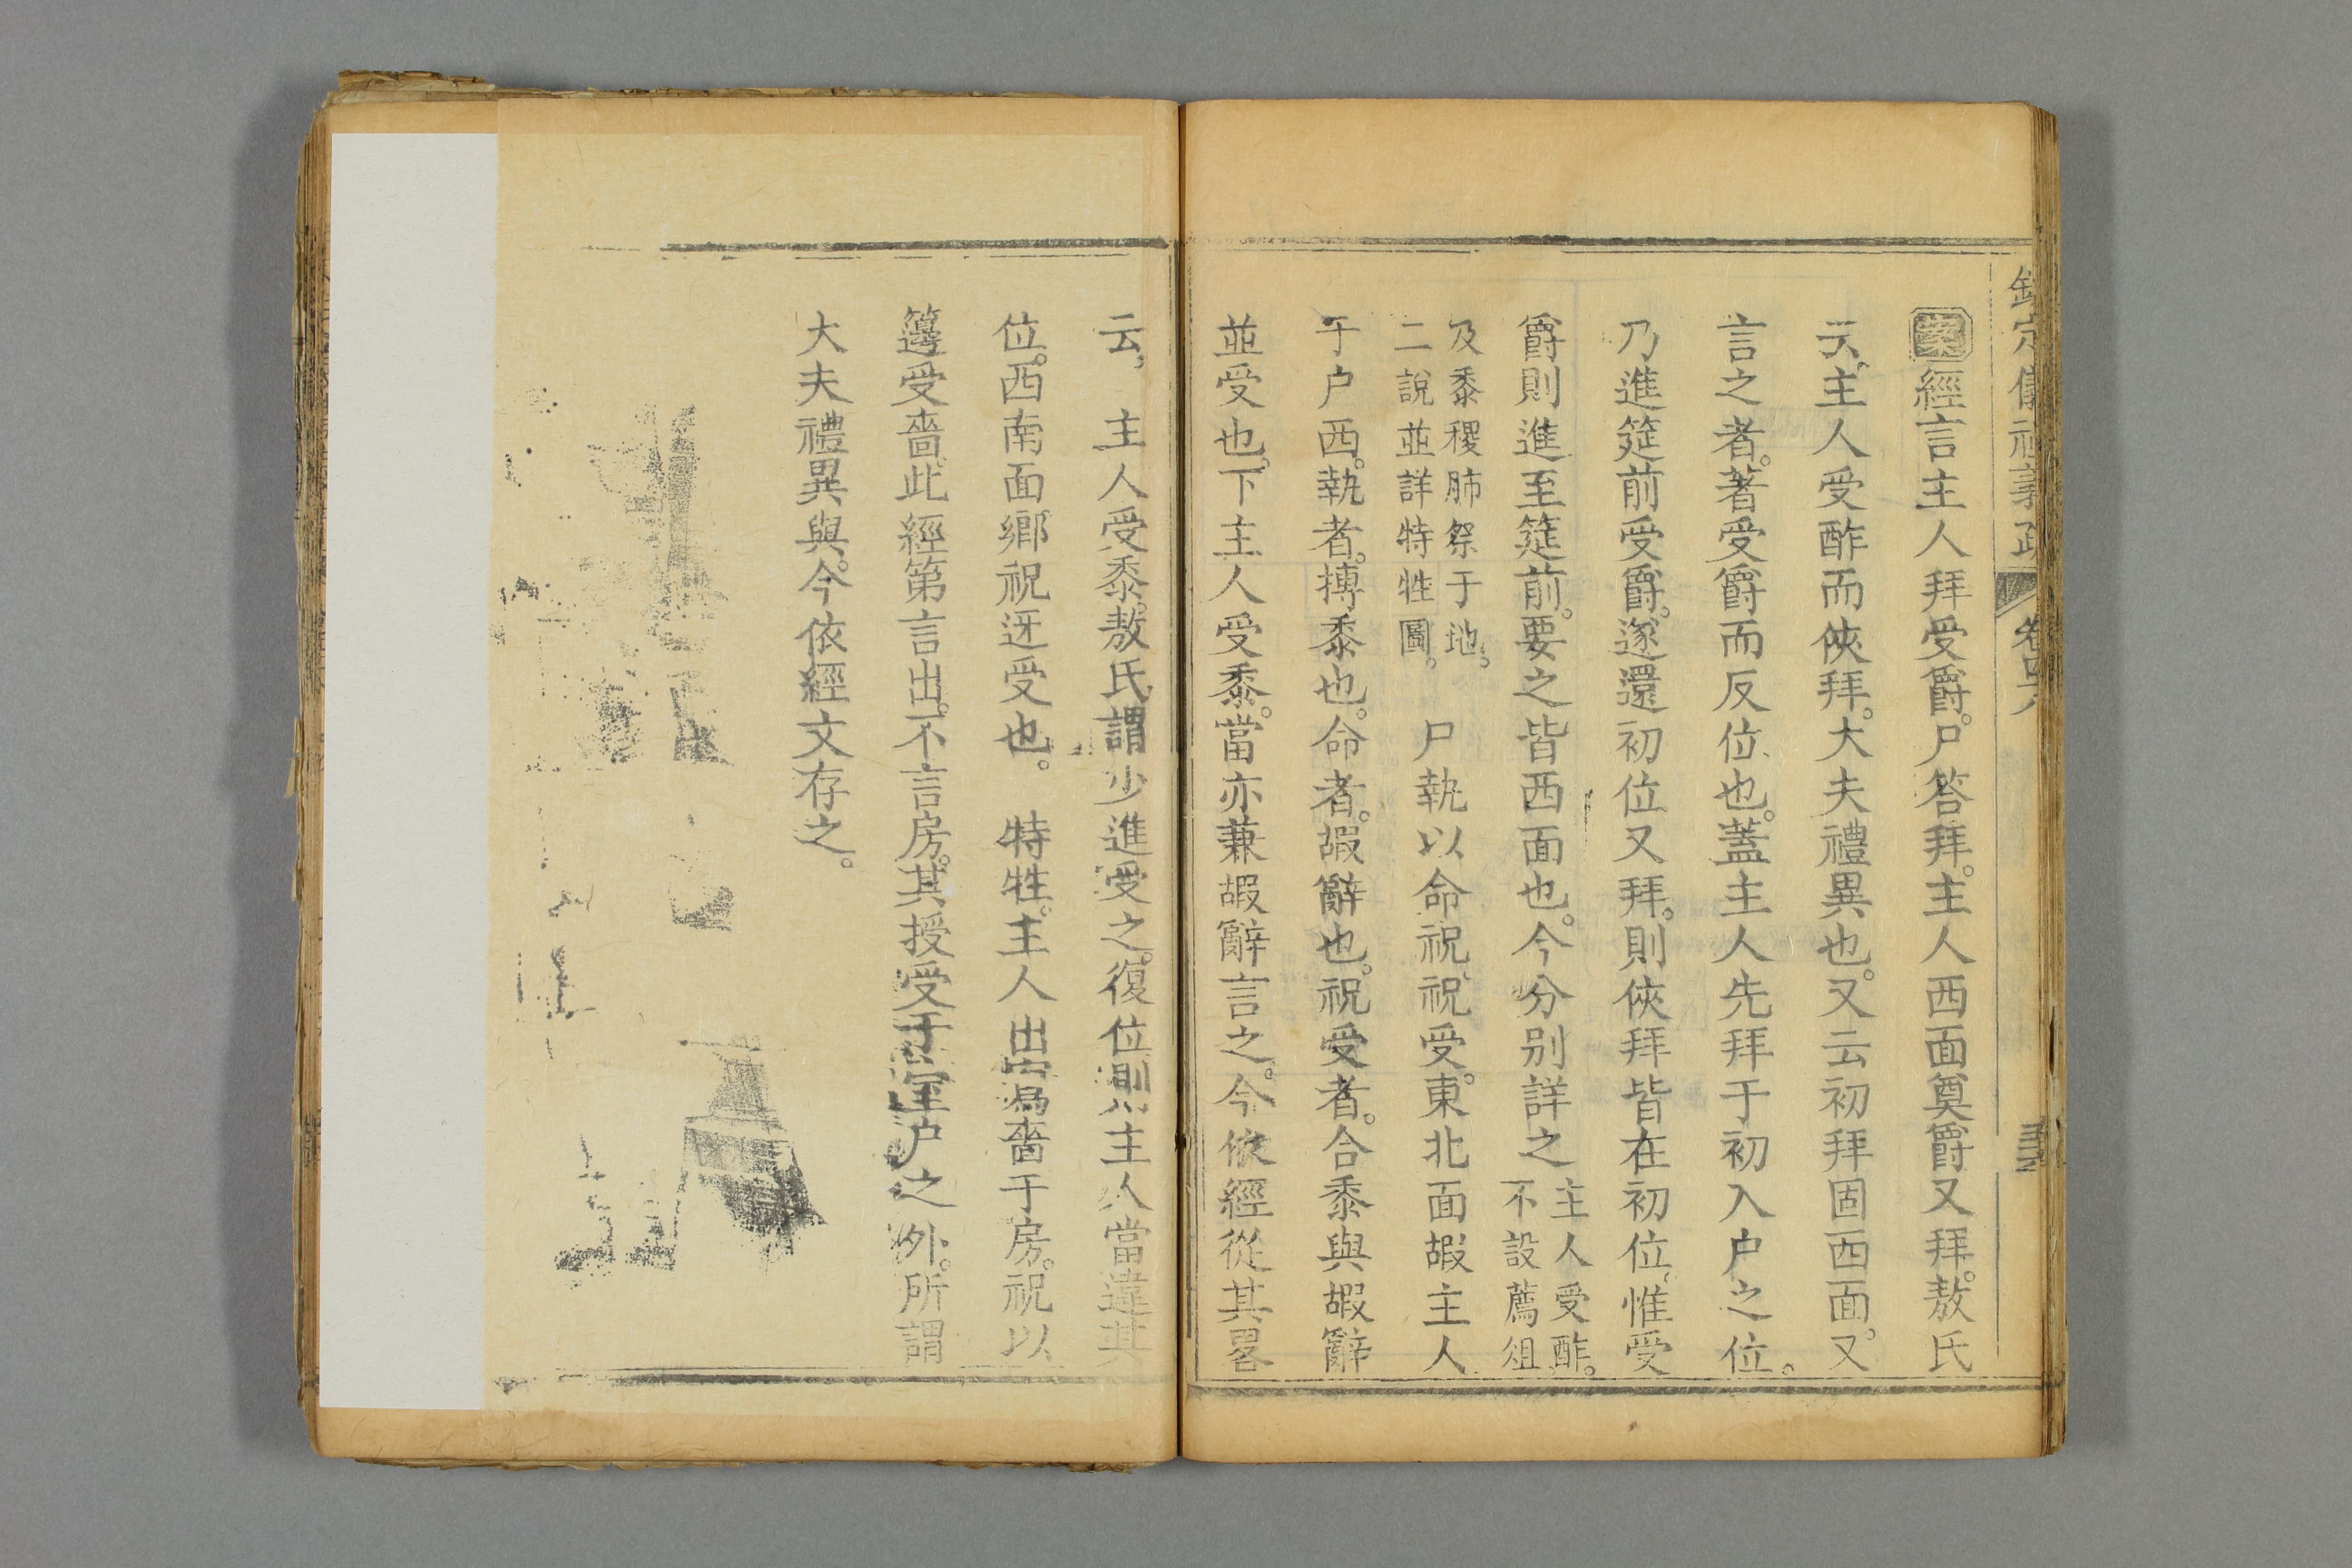 欽定儀禮義疏 卷四六
案經言主人拜受爵。尸答拜。主人西面奠爵又拜。敖氏
云。主人受酢而俠拜。大夫禮異也。又云初拜固西面。又
言之者。著受爵而反位也。蓋主人先拜于初入户之位。
乃進筵前受爵。遂還初位又拜。則俠拜皆在初位。惟受
爵則進至筵前。要之皆西面也。今分别詳之主人受酢。不設薦俎
及黍稷肺祭于地。二說並詳特牲圖。 尸執以命祝。祝受。東北面嘏主人
于户西。執者。摶黍也。命者。嘏辭也。祝受者。合黍與嘏辭
並受也。下主人受黍。當亦兼嘏辭言之。今依經從其畧
云。 主人受黍。敖氏謂少進受之。復位則主人當違其
位。西南面鄉祝迓受也。 特牲。主人出寫嗇于房。祝以
籩受嗇此經第言出。不言房。其授受于室户之外。所謂
大夫禮異與。今依經文存之。